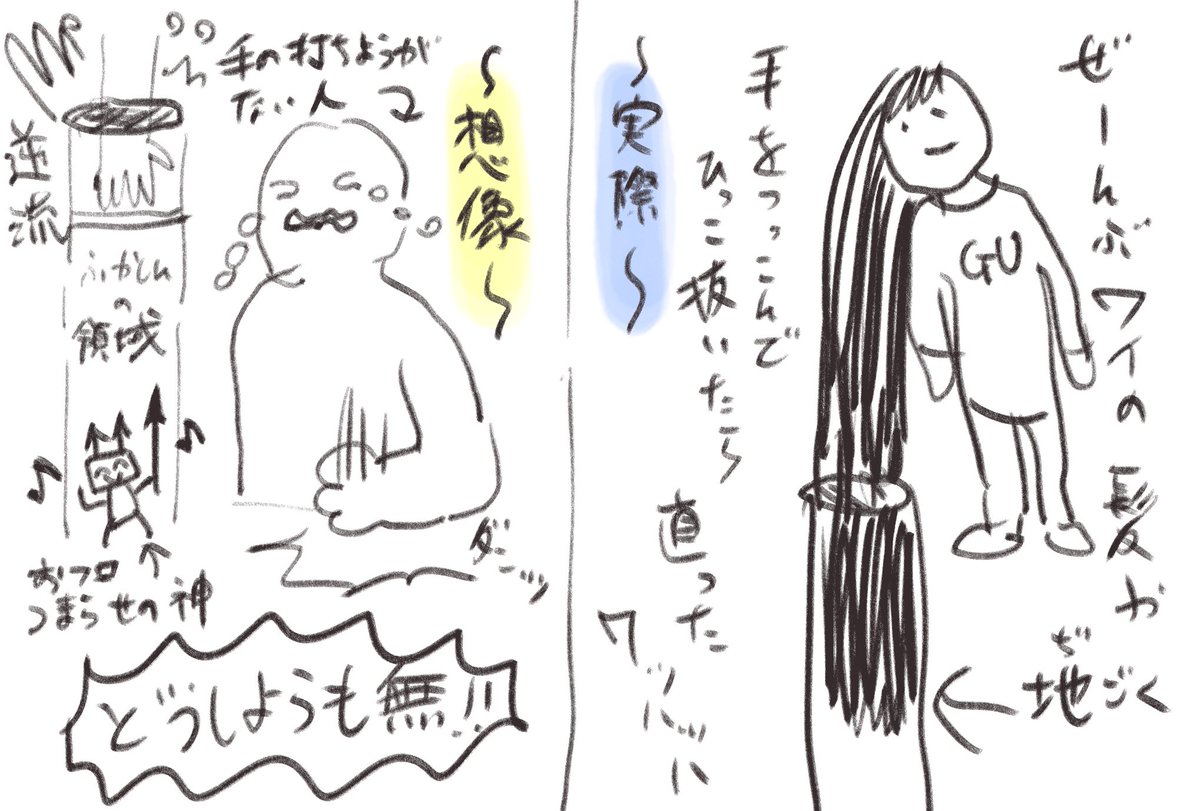 ぜーんぶワイの髪か
GU
地ごく
ぢ
手をつっこんで
ひっこ抜いたら
直った
ワッハッハ
～実際～
～想像～
手の打ちようが
ない人
ダンッ
逆流
ふかしんの
領域
おフロ
つまらせの神
どうしようも無!!